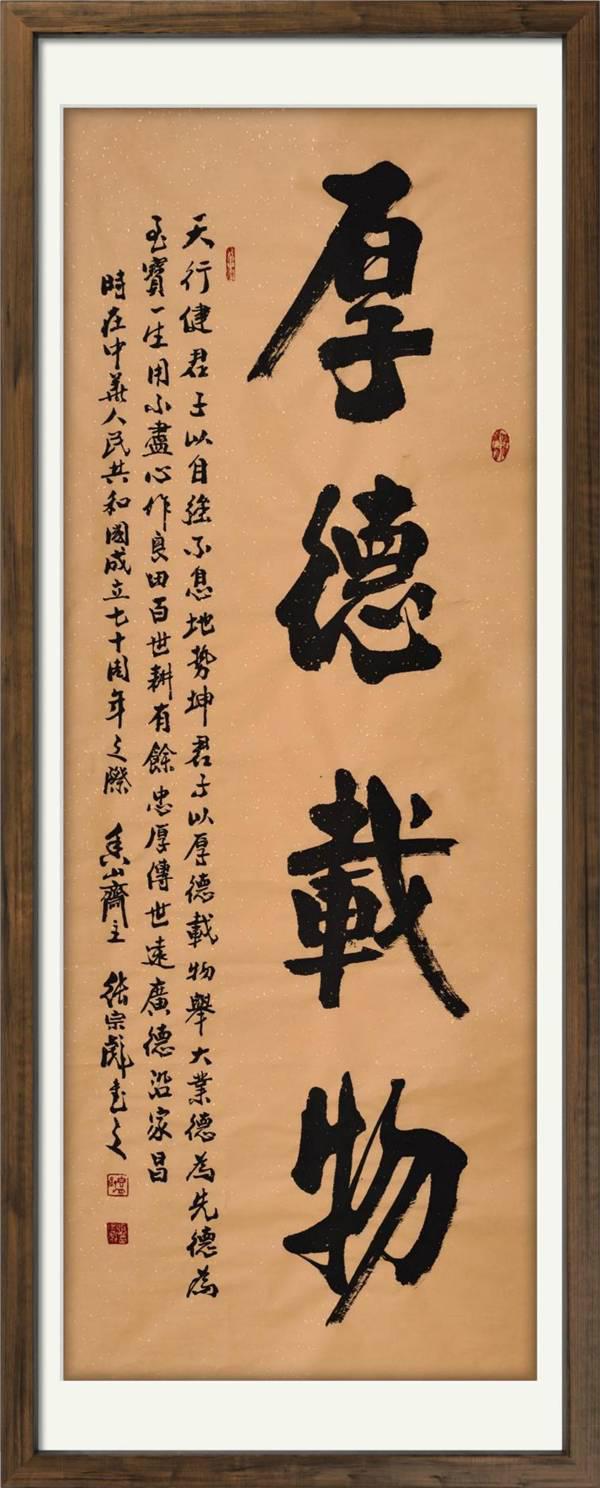 厚德載物
天行健君子以自強不息地勢坤君子以厚德載物舉大業德為先德為
至寶一生用不盡心作良田百世耕有餘忠厚傳世遠廣德沿家昌
時在中華人民共和國成立七十周年之際 香山齋主 張宗彪書之